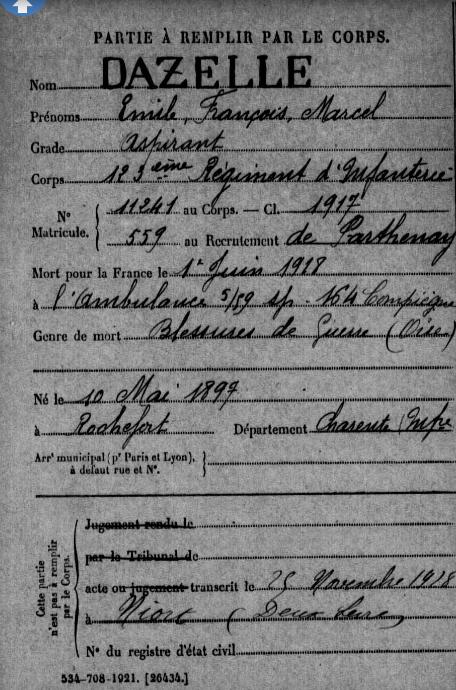 PARTIE À REMPLIR PAR LE CORPS.
Nom DAZELLE
Prénoms Emile, François, Marcel
Grade Aspirant
Corps 123ème Régiment d'Infanterie
N° Matricule. 11241 au Corps. — Cl. 1917
559 au Recrutement de Parthenay
Mort pour la France le 1r Juin 1918
à l'ambulance 5/59 sp. 164 Compiègne
Genre de mort Blessures de Guerre (Oise)
Né le 10 Mai 1897
à Rochefort Département Charente Infre
Arrt municipal (pr Paris et Lyon), à défaut rue et N°.
Cette partie n'est pas à remplir par le Corps.
Jugement rendu le
par le Tribunal de
acte ou jugement transcrit le 25 Novembre 1918
à Niort (Deux Sèvres)
N° du registre d'état civil
534-708-1921. [26434.]